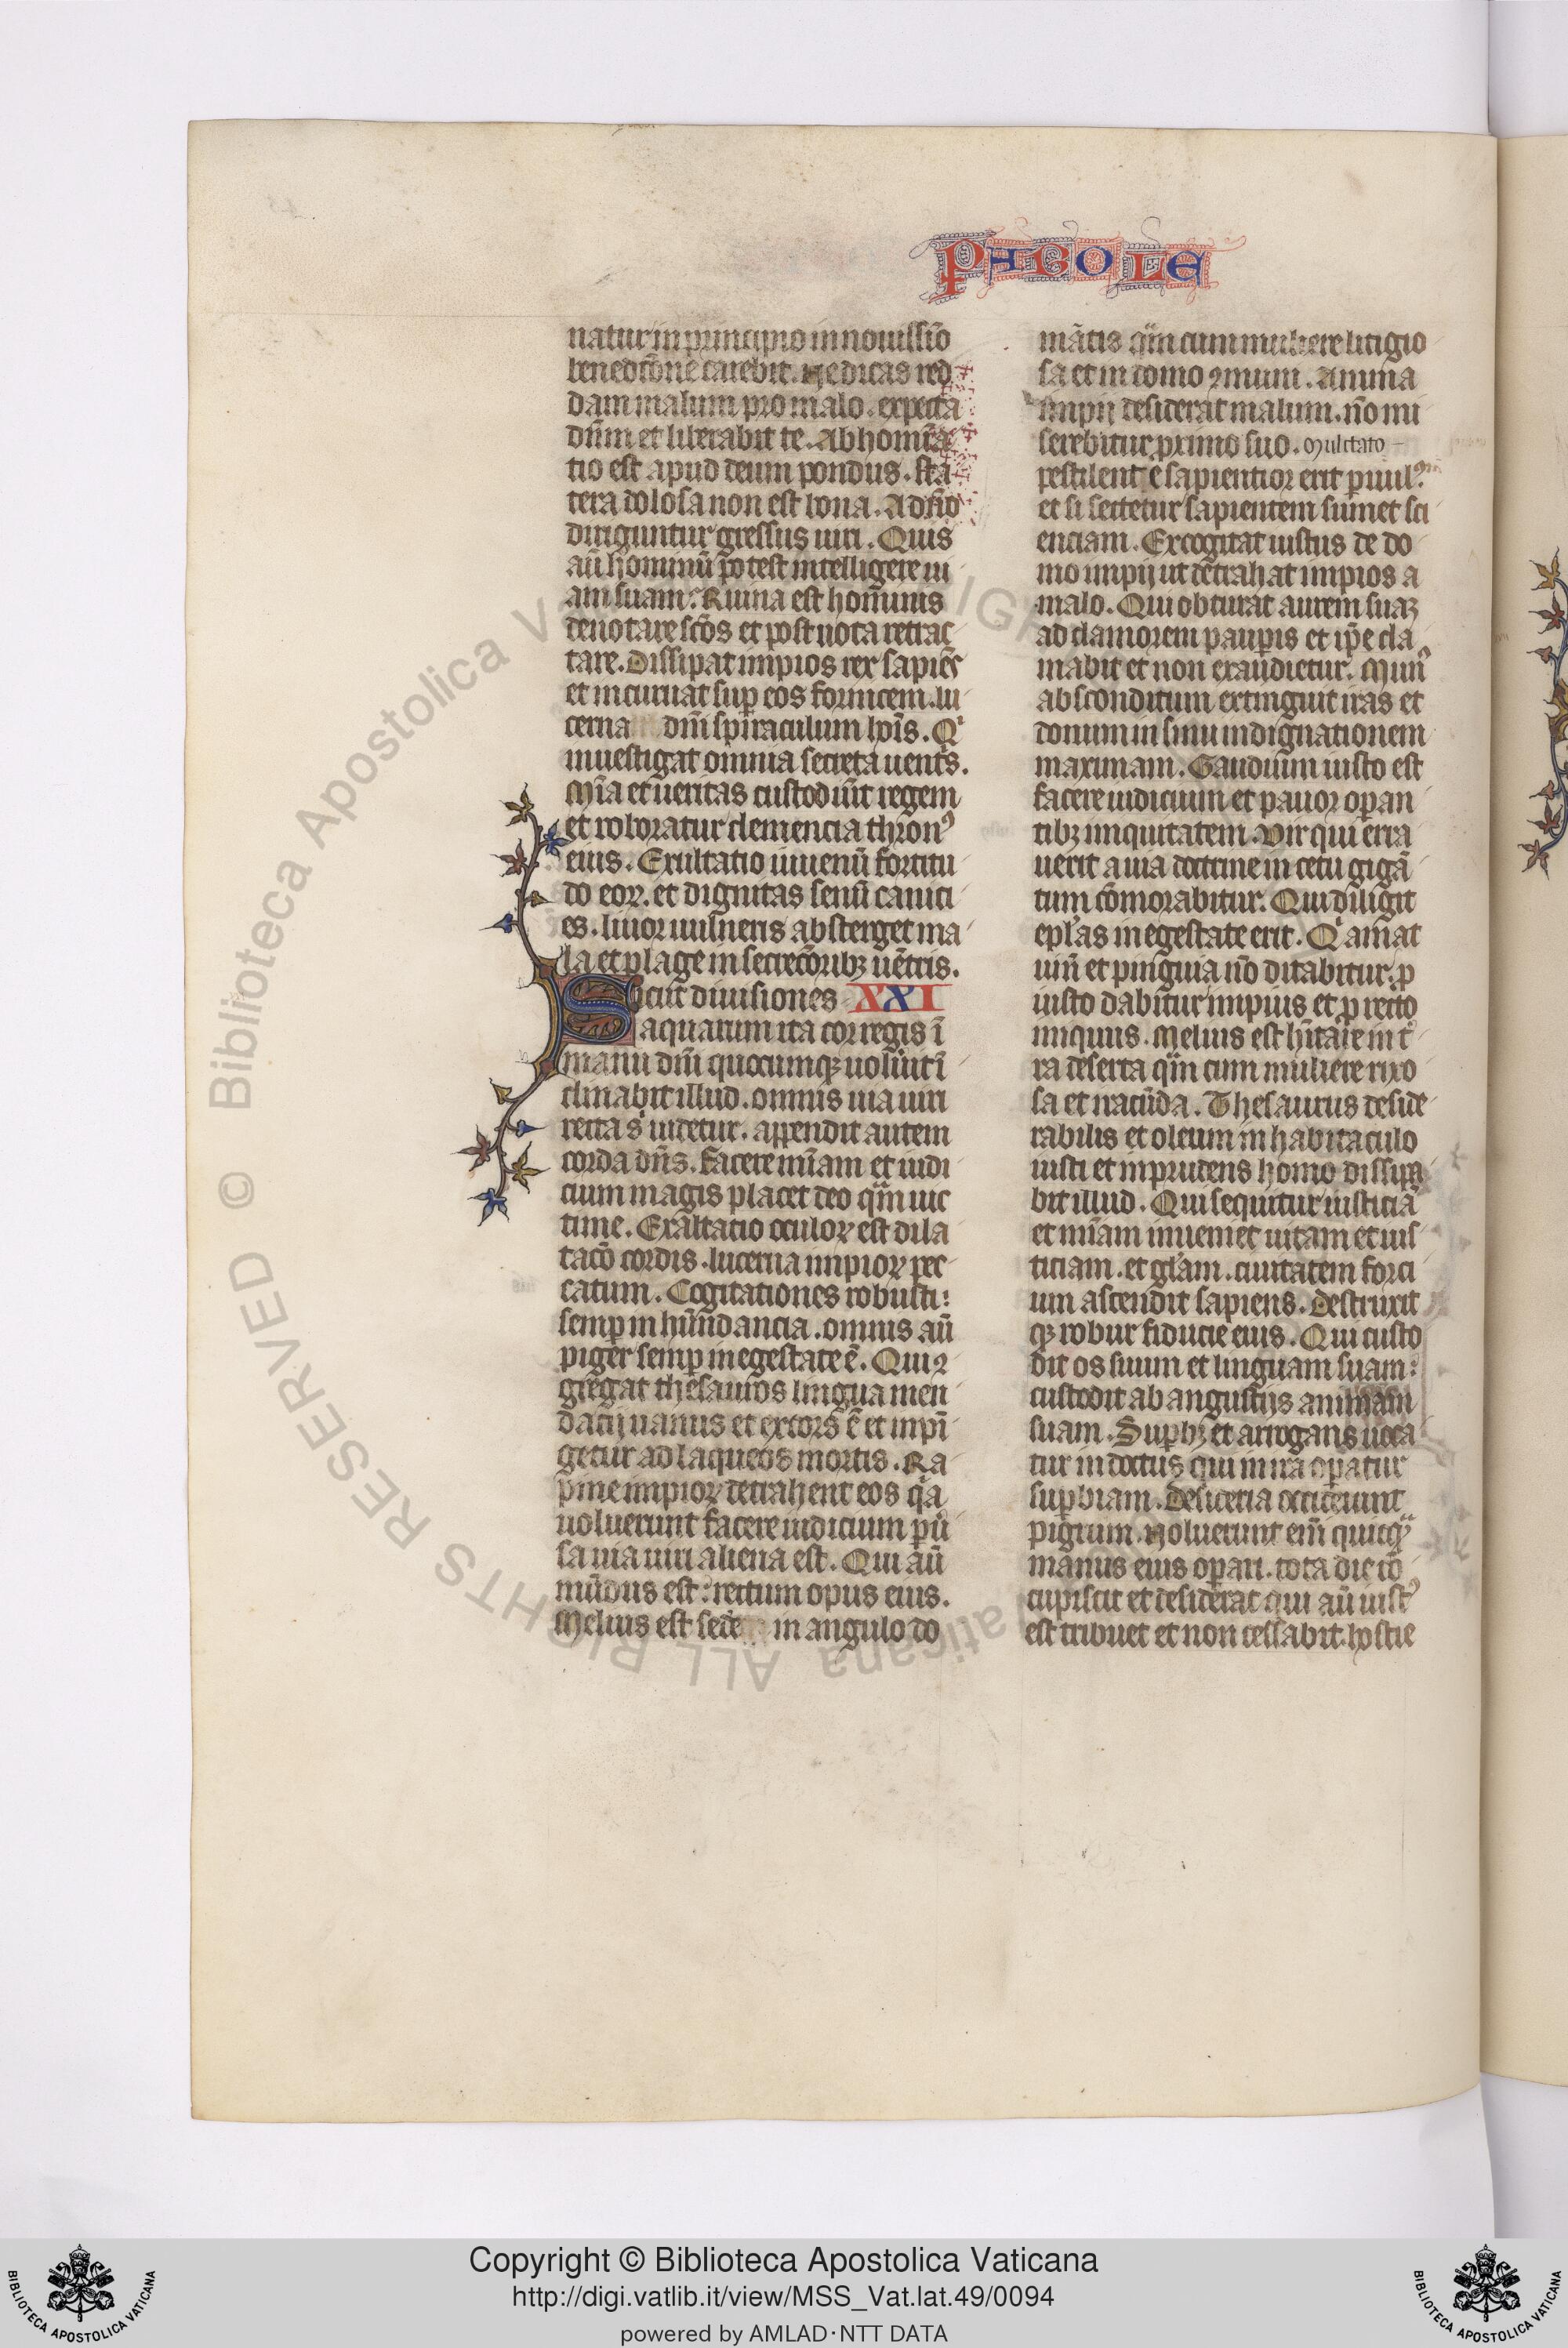 PABOLE
natur in principio in nouissīo
benedcōne carebit. Ne dicas red
dam malum pro malo. expecta
dn̄m et liberabit te. Abhomīa
tio est apud deum pondus. sta
tera dolosa non est bona. A dn̄o
diriguntur gressus uiri. Quis
aū hominū potest intelligere ui
am suam. Ruina est hominis
deuotare sc̄os et post uota retrac
tare. Dissipat impios rex sapiēs
et incuruat sup̄ eos fornicem. lu
cerna dn̄i spiraculum hoīs. Qͥ
inuestigat omnia secreta uentͥs.
Mīa et ueritas custodiūt regem
et roboratur clemencia thronꝰ
eius. Exultatio iuuenū fortitu
do eoꝝ. et dignitas senū canici
es. liuor uulneris absterget ma
la et plage in secretioribꝫ uētris.
Sicut diuisiones XXI
aquarum ita cor regis ī
manu dn̄i quocumqꝫ uoluīt ī
clinabit illud. omnis uia uiri
recta sͥ uidetur. appendit autem
corda dn̄s. facere mīam et iudi
cium magis placet deo qͣm uic
time. Exaltatio oculoꝝ est dila
tacō cordis. lucerna impioꝝ pec
catum. Cogitationes robusti:
semp̄ in hūndancia. omnis aū
piger semp̄ in egestate ē. Qui ꝯ
gregat thesauros lingua men
dacij uanus et excors ē et inpī
getur ad laqueos mortis. Ra
pine impioꝝ detrahent eos qͥa
noluerunt facere iudicium p̄ū
sa uia uiri aliena est. Qui aū
mūdus est: rectum opus eius.
Melius est sede in angulo do
mātis qͣm cum muliere litigio
sa et in domo ꝯmuni. Anima
impij desiderat malum. nō mi
serebitur ꝓximo suo. Mulctato
pestilent e sapientior erit paruulꝰ
et si sectetur sapientem sumet sci
enciam. Excogitat iustus de do
mo impij ut detrahat impios a
malo. Qui obturat aurem suaꝫ
ad clamorem paup̄is et ip̄e cla
mabit et non exaudietur. Munꝰ
absconditum extinguit iras et
donum in sinu indignationem
maximam. Gaudium iusto est
facere iudicium et pauor op̄an
tibꝫ iniquitatem. Vir qui erra
uerit a uia doctrine in cetu gigā
tum cōmorabitur. Qui diligit
epl̄as in egestate erit. Qͥ amat
uin̄ et pinguia nō ditabitur. ꝓ
iusto dabitur impius et ꝓ recto
iniquus. Melius est hītare in tͬ
ra deserta qͣm cum muliere rixo
sa et iracūda. Thesaurus deside
rabilis et oleum in habitaculo
iusti et inprudens homo dissipa
bit illud. Qui sequitur iusticiā
et mīam inueniet uitam et ius
ticiam. et gl̄am. ciuitatem forci
um ascendit sapiens. Destruxit
qꝫ robur fiducie eius. Qui custo
dit os suum et linguam suam:
custodit ab angustijs animam
suam. Sup̄bꝫ et arrogans uoca
tur indoctus qui in ira op̄atur
sup̄biam. Desideria occiderunt
pigrum. Noluerunt eīm quicqͣꝫ
manus eius op̄ari. tota die cō
cupiscit et desiderat qui aū iustꝰ
est tribuet et non cessabit. hostie
© Biblioteca Apostolica Vaticana ALL RIGHTS RESERVED
Copyright © Biblioteca Apostolica Vaticana
http://digi.vatlib.it/view/MSS_Vat.lat.49/0094
powered by AMLAD·NTT DATA
BIBLIOTECA APOSTOLICA VATICANA
BIBLIOTECA APOSTOLICA VATICANA